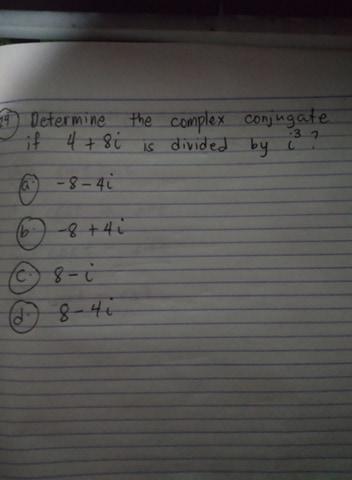 29 Determine the complex conjugate
if 4 + 8i is divided by i³?
a. -8 - 4i
b. -8 + 4i
c. 8 - i
d. 8 - 4i